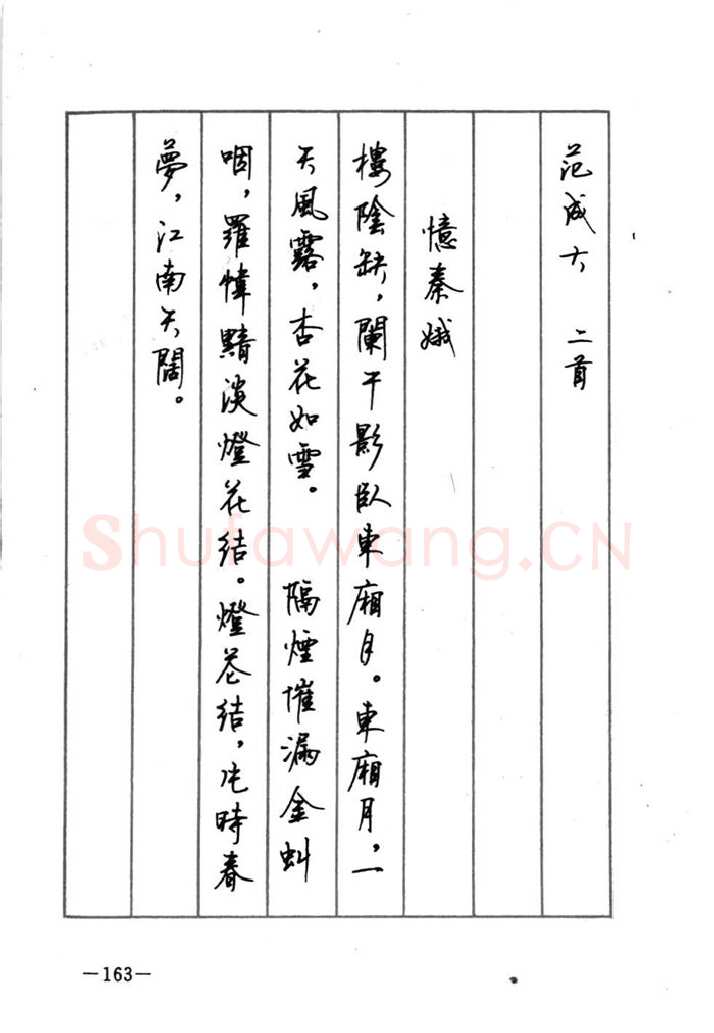 范成大 二首
憶秦娥
樓陰缺，闌干影臥東廂月。東廂月，一
天風露，杏花如雪。 隔煙催漏金虯
咽，羅幃黯淡燈花結。燈花結，片時春
夢，江南天闊。
—163—
Shufawang.CN